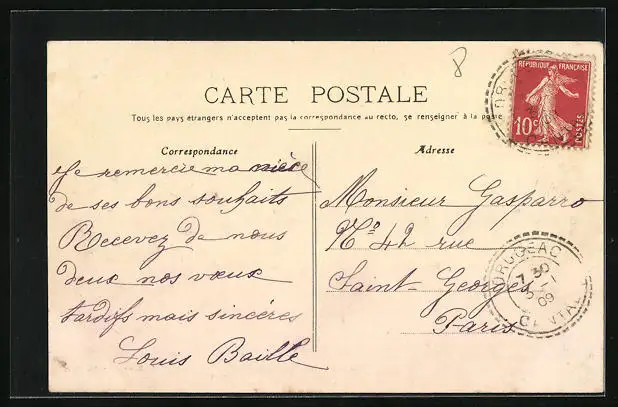 8
RÉPUBLIQUE FRANÇAISE
10c
POSTES
CARTE POSTALE
Tous les pays étrangers n'acceptent pas la correspondance au recto, se renseigner à la poste
Correspondance
Je remercie ma nièce
de ses bons souhaits
Recevez de nous
deux nos vœux
tardifs mais sincères
Louis Baille
Adresse
Monsieur Gasparro
No 42 rue
Saint-Georges
Paris
DRUGEAC
7 30
5 - 1
09
CANTAL